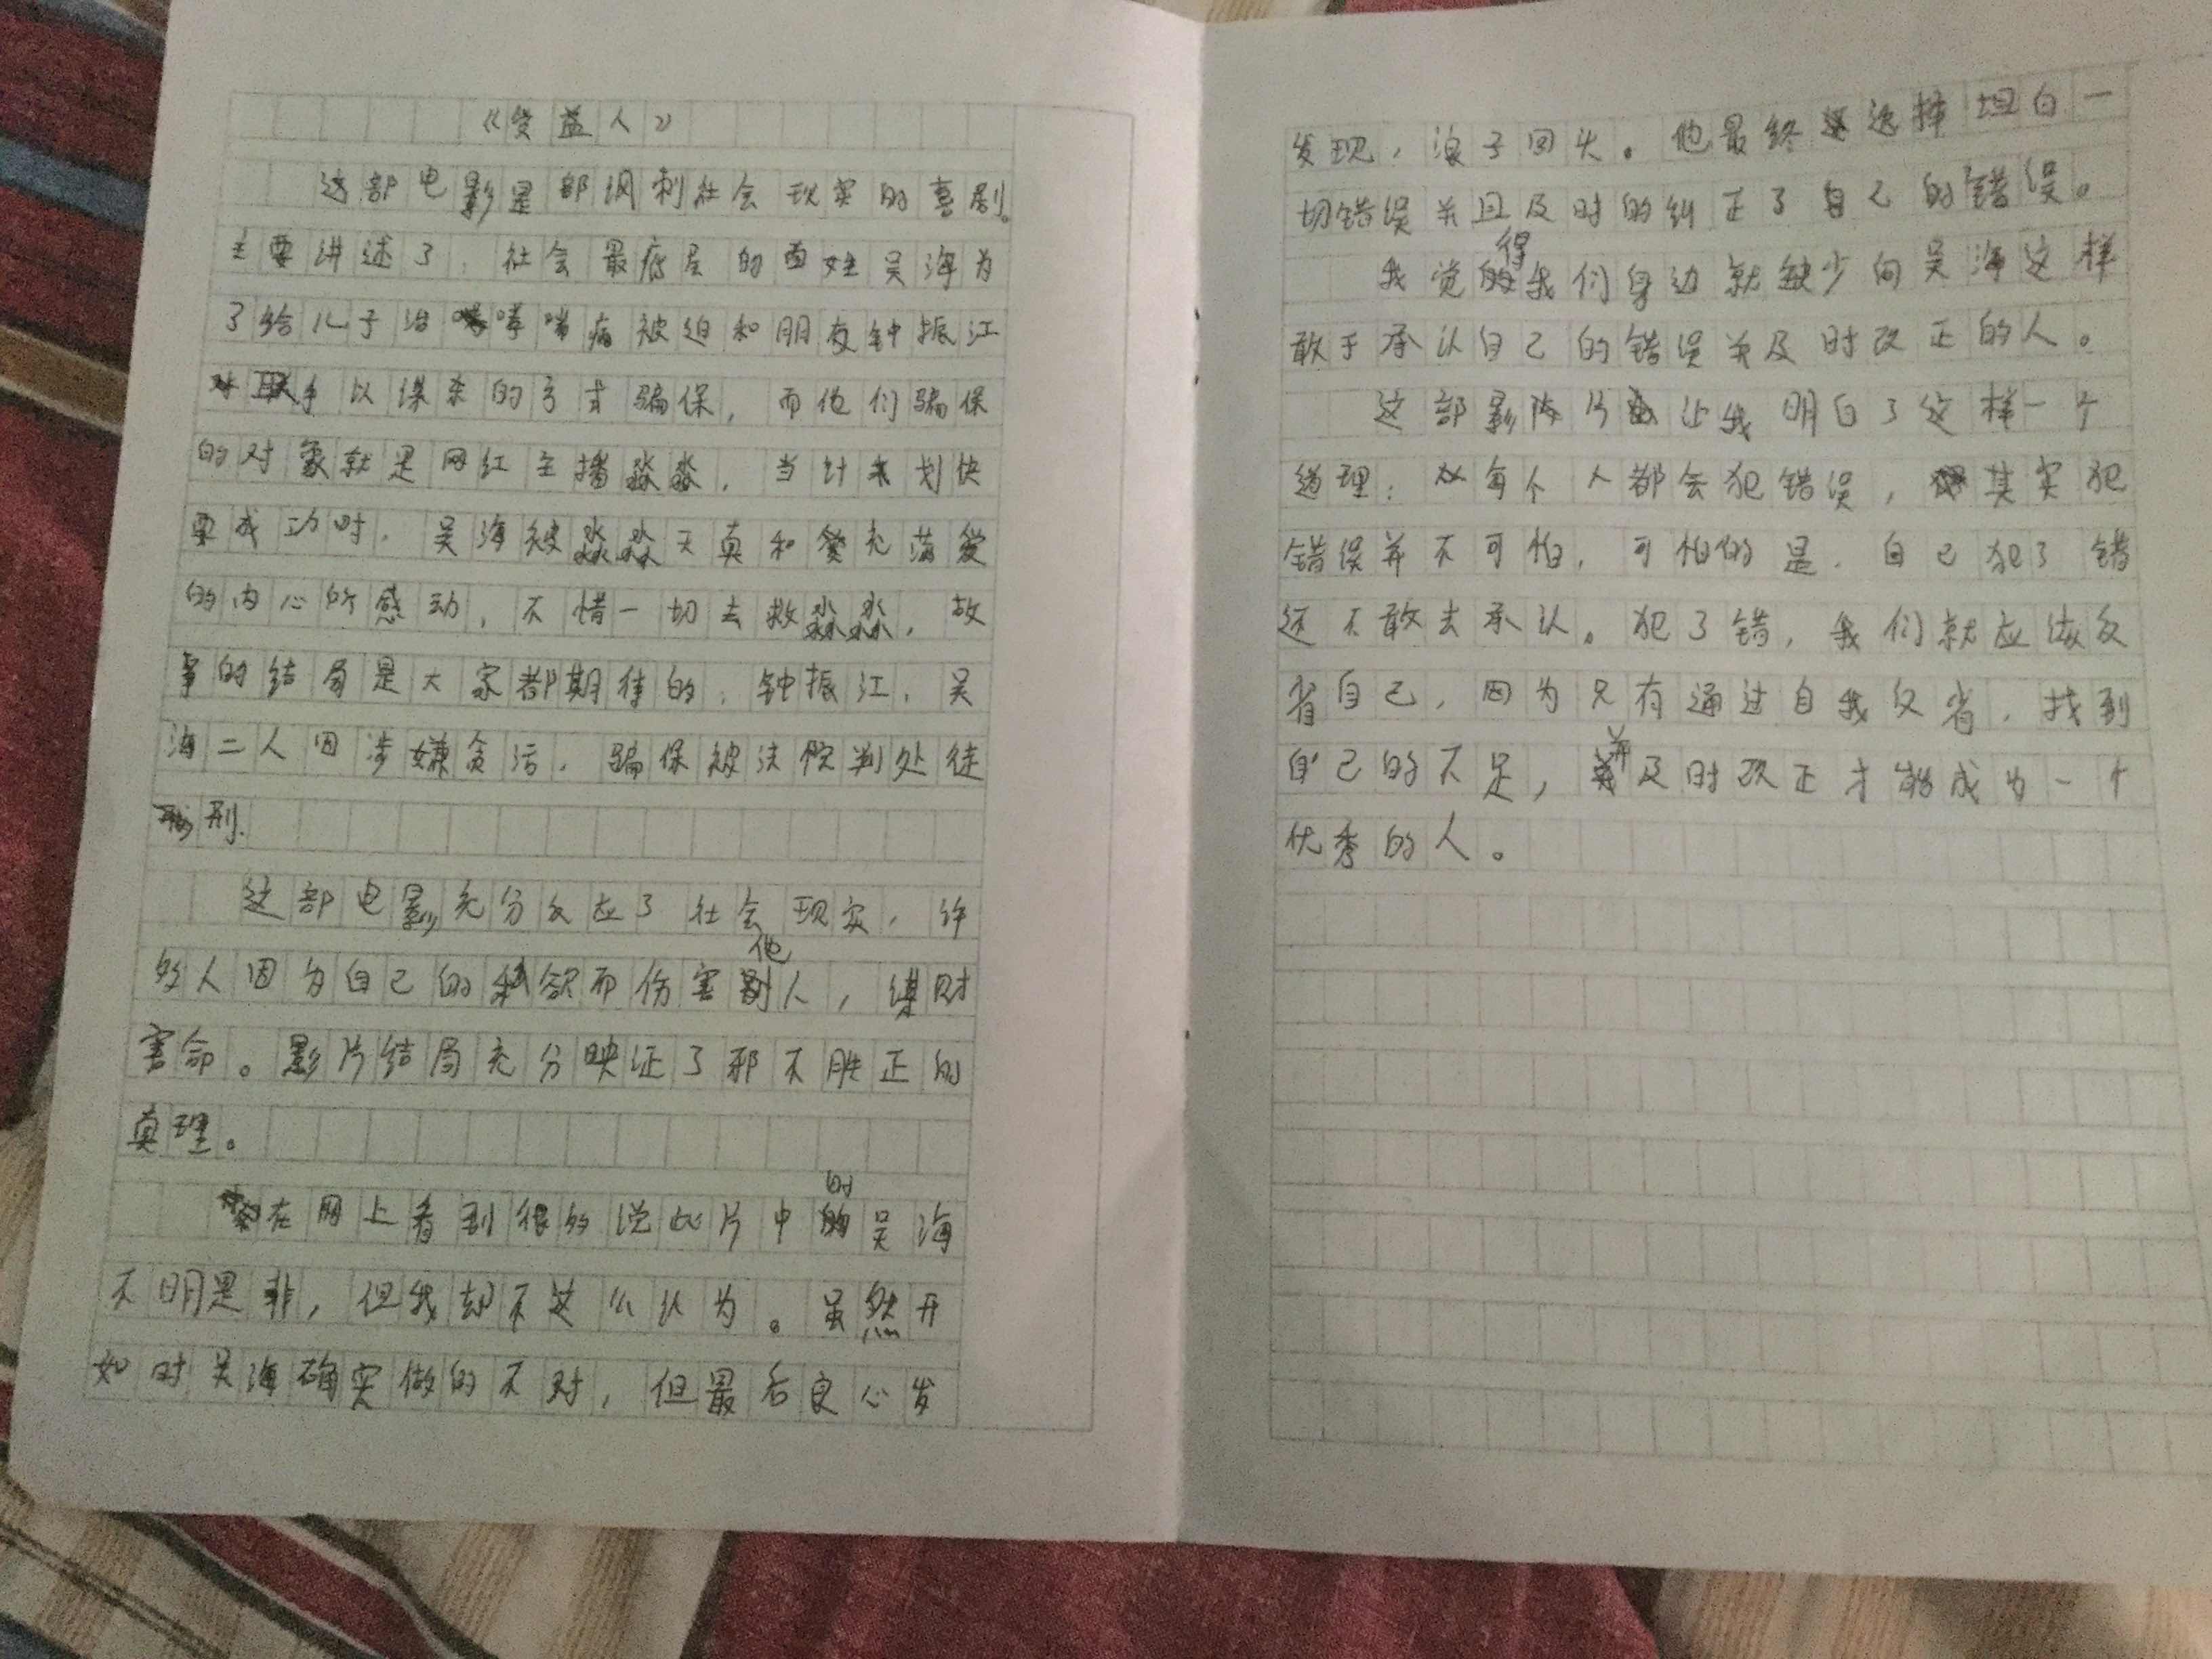 《受益人》
这部电影是部讽刺社会现实的喜剧。
主要讲述了，社会最底层的百姓吴海为
了给儿子治哮喘病被迫和朋友钟振江
联手以谋杀的方式骗保，而他们骗保
的对象就是网红主播淼淼，当计划快
要成功时，吴海被淼淼天真和充满爱
的内心所感动，不惜一切去救淼淼，故
事的结局是大家都期待的，钟振江，吴
海二人因涉嫌贪污，骗保被法院判处徒
刑.
这部电影充分反应了社会现实，许
多人因为自己的私欲而伤害他人，谋财
害命。影片结局充分映证了邪不胜正的
真理。
在网上看到很多说此片中的吴海
不明是非，但我却不这么认为。虽然开
始时吴海确实做的不对，但最后良心发
发现，浪子回头。他最终选择坦白一
切错误并且及时的纠正了自己的错误。
我觉得我们身边就缺少向吴海这样
敢于承认自己的错误并及时改正的人。
这部影片让我明白了这样一个
道理：每个人都会犯错误，其实犯
错误并不可怕，可怕的是，自己犯了错
还不敢去承认。犯了错，我们就应该反
省自己，因为只有通过自我反省，找到
自己的不足，并及时改正才能成为一个
优秀的人。